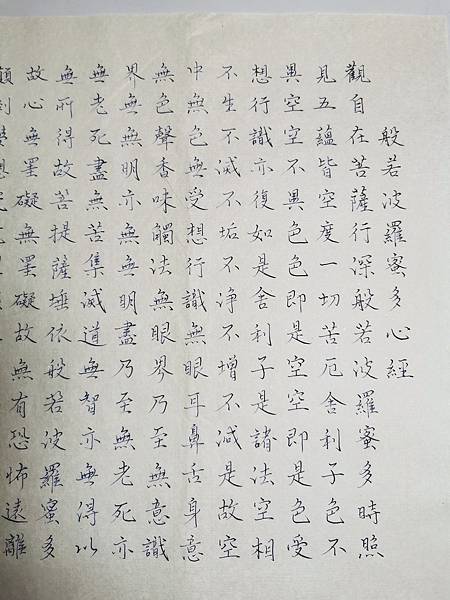 般若波羅蜜多心經
觀自在菩薩行深般若波羅蜜多時照
見五蘊皆空度一切苦厄舍利子色不
異空空不異色色即是空空即是色受
想行識亦復如是舍利子是諸法空相
不生不滅不垢不淨不增不減是故空
中無色無受想行識無眼耳鼻舌身意
無色聲香味觸法無眼界乃至無意識
界無無明亦無無明盡乃至無老死亦
無老死盡無苦集滅道無智亦無得以
無所得故菩提薩埵依般若波羅蜜多
故心無罣礙無罣礙故無有恐怖遠離
顛倒